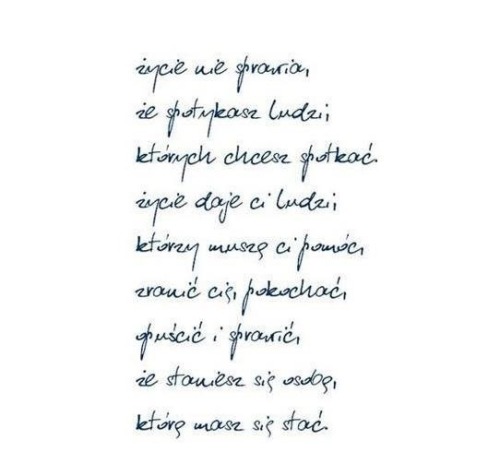 życie nie sprawia,
że spotykasz ludzi,
których chcesz spotkać.
życie daje ci ludzi,
którzy muszą ci pomóc,
zranić cię, pokochać,
opuścić i sprawić,
że staniesz się osobą,
którą masz się stać.